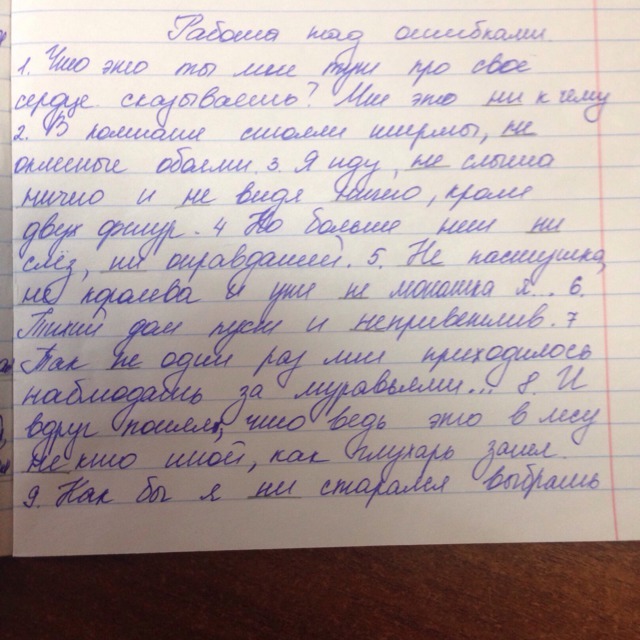 Работа над ошибками
1. Что это ты мне тут про свое
сердце сказываешь? Мне это ни к чему
2. В комнате стояли ширмы, не
оклееные обоями. 3. Я иду, не слыша
ничего и не видя ничего, кроме
двух фигур. 4 Но больше нет ни
слёз, ни оправданий. 5. Не пастушка,
не королева и уже не монашка я... 6.
Тихий дом пуст и неприветлив. 7
Так не один раз мне приходилось
наблюдать за муравьями... 8. И
вдруг понял, что ведь это в лесу
не кто иной, как глухарь запел.
9. Как бы я ни старался выбрать